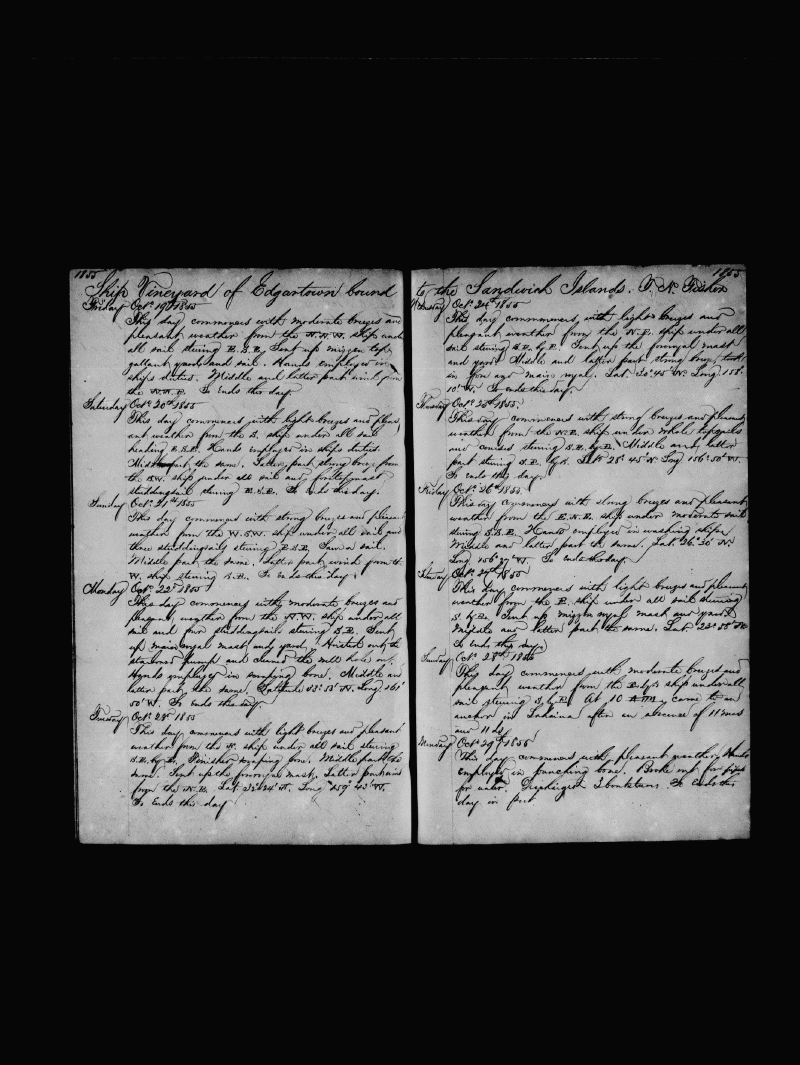 1855
Ship Vineyard of Edgartown bound
Friday Oct. 19th 1855
This day commences with moderate breezes and
pleasant weather from the N.N.W. ship under
all sail stering E.S.E. Sent up mizzen top
gallant yard and sail. Hands employed in
ships duties. Middle and latter part wind from
the So ends this day.
Saturday Oct. 20th 1855
This day commences with light breezes and pleas
ant weather from the S. ship under all sail
heading E.S.E. Hands employed in ships duties.
Middle part the same. Latter part strong breeze from
the S.W. ship under all sail and foretopmast
studdingsail stering E.S.E. So ends this day.
Sunday Oct. 21st 1855
This day commences with strong breezes and pleasant
weather from the W.S.W. ship under all sail and
three studdingsails stering E.S.E. Saw a sail.
Middle part the same. Latter part wind from the
W. ship stering S.E. So ends this day.
Monday Oct. 22d 1855
This day commences with moderate breezes and
pleasant weather from the N.W. ship under all
sail and four studdingsails stering S.E. Sent
up main royal mast and yard. Histed out the
starbord pump and cleaned the well hole out.
Hands employed in scraping bone. Middle and
latter part the same. Latitude 33° 53' N. Long 161°
50' W. So ends this day.
Tuesday Oct. 23d 1855
This day commences with light breezes and pleasant
weather from the N. ship under all sail stering
S.E. by S. Finished scraping bone. Middle part the
same. Sent up the foreroyal mast. Latter part wind
from the N.E. Lat 32° 24' N. Long 159° 43' W.
So Ends this day
1855
to the Sandwich Islands. Fisher
Oct. 24th 1855
This day commences with light breezes and
pleasant weather from the N.E. ship under all
sail stering S.E. by E. Sent up the foreroyal mast
and yard. Middle and latter part strong breezes took
in fore and main royal. Lat. 30° 45' N. Long 158°
10' W. So ends this day.
Thursday Oct. 25th 1855
This day commences with strong breezes and pleasant
weather from the N.E. ship under whole topsails
and courses stering S.E. by E. Middle and latter
part stering S.E. by S. Lat. 28° 45' N. Long 156° 50' W.
So ends this day.
Friday Oct. 26th 1855
This day commences with strong breezes and pleasant
weather from the E.N.E. ship under moderate sail
stering S.S.E. Hands employed in washing ship.
Middle and latter part the same. Lat. 26° 36' N.
Long 156° 27' W. So ends this day.
Saturday Oct. 27th 1855
This day commences with light breezes and pleasant
weather from the E. ship under all sail stering
S. by E. Sent up mizzen royal mast and yard.
Middle and latter part the same. Lat. 23° 55' N.
So ends this day.
Sunday Oct. 28th 1855
This day commences with moderate breezes and
pleasant weather from the E. by S. ship under all
sail stering S. by E. At 10 A.M. came to an
anchor in Lahaina after an absence of 11 mos
and 11 ds.
Monday Oct. 29th 1855
This day commences with pleasant weather, Hands
employed in bunching bone. Broke out
for water. Discharged 2 boatsteers. So ends this
day in port